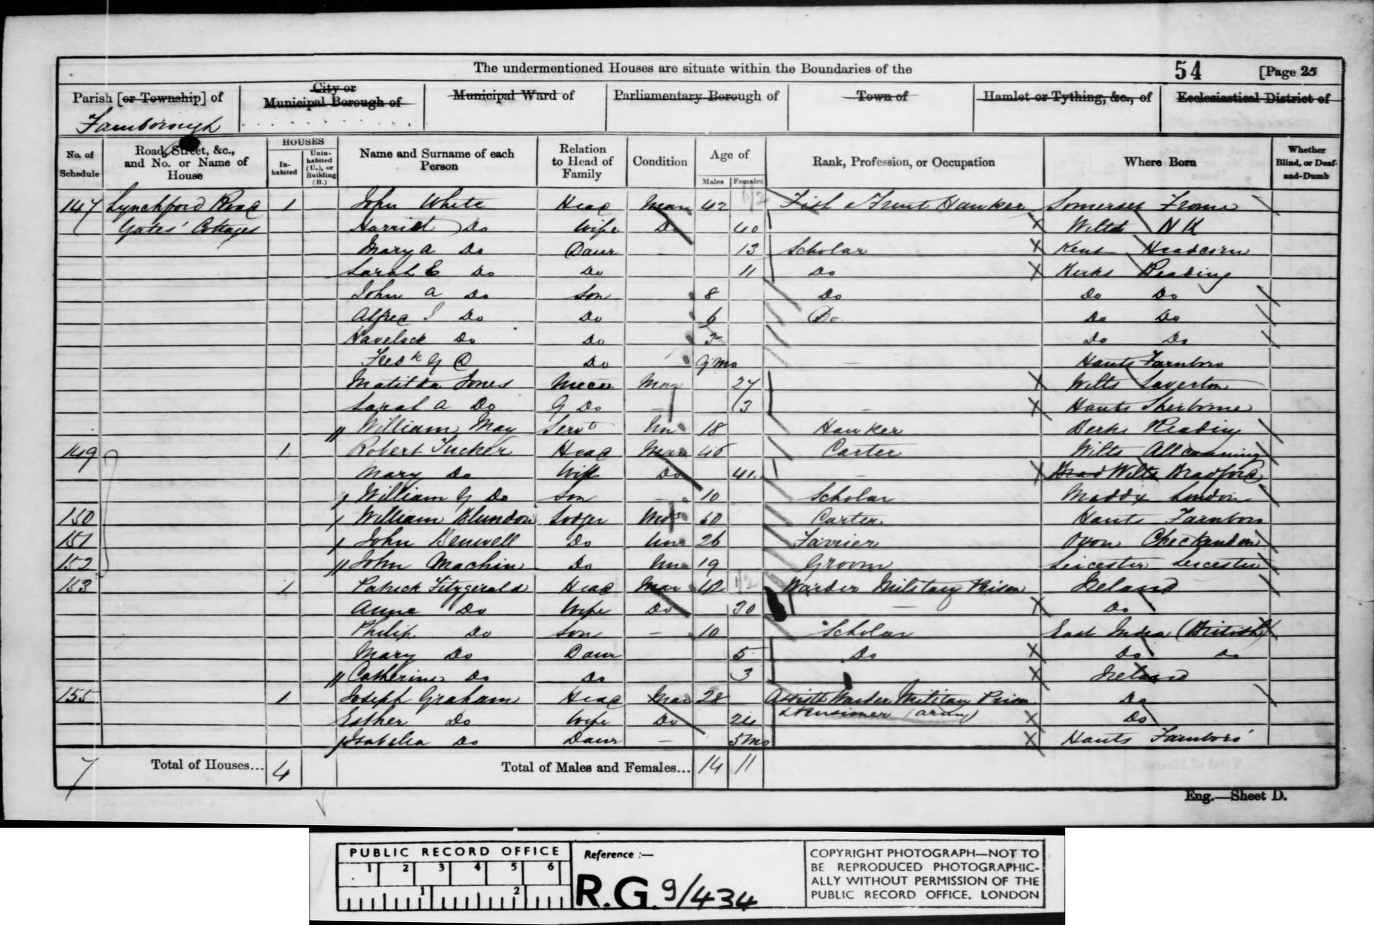 The undermentioned Houses are situate within the Boundaries of the
54
[Page 25
Parish [or Township] of
City or Municipal Borough of
Municipal Ward of
Parliamentary Borough of
Town of
Hamlet or Tything, &c., of
Ecclesiastical District of
Farnborough
No. of Schedule
Road, Street, &c., and No. or Name of House
HOUSES
In-habited
Unin-habited (U.), or Building (B.)
Name and Surname of each Person
Relation to Head of Family
Condition
Age of
Males
Females
Rank, Profession, or Occupation
Where Born
Whether Blind, or Deaf-and-Dumb
147 Lynchford Road 1 John White Head Mar 42 Fish & Fruit Hawker Somerset Frome
Gates' Cottages Harriet Do Wife Do 40 Wilts N K
Mary A Do Daur — 13 Scholar Kent Headcorn
Sarah E Do Do 11 Do Berks Reading
John A Do Son 8 Do Do Do
Alfred J Do Do 6 Do Do Do
Havelock Do Do 3 Do Do
Fredk G Do 9 mo Hants Farnboro
Matilda Jones Mar 27 Wilts Laverton
Sarah A Do G Do — 3 — Hants Sherborne
William May Servt Un 18 Hawker Berks Reading
149 1 Robert Tucker Head Mar 46 Carter Wilts Allcanning
Mary Do Wife Do 41 — Wilts Bradford
William G Do Son — 10 Scholar Maddx London
150 William Blundon Lodger 50 Carter Hants Farnboro
151 John Benwell Do Unm 26 Farrier Oxon Checkendon
152 John Machin Do Unm 19 Groom Leicester Leicester
153 1 Patrick Fitzgerald Head Mar 40 Warder Military Prison Ireland
Anne Do Wife Do 30 — Do
Philip Do Son — 10 Scholar East India (British)
Mary Do Daur 5 Do Do Do
Catherine Do Do 3 Ireland
155 1 Joseph Graham Head Mar 28 Assistt Warder Military Prison Do
Esther Do Wife Do 24 & Pensioner (army) Do
Isabella Do Daur — 5 mo Hants Farnboro'
7 Total of Houses... 4 Total of Males and Females... 14 11
Eng.—Sheet D.
PUBLIC RECORD OFFICE
1 2 3 4 5 6
1 2
Reference :—
R.G. 9/434
COPYRIGHT PHOTOGRAPH—NOT TO
BE REPRODUCED PHOTOGRAPHIC-
ALLY WITHOUT PERMISSION OF THE
PUBLIC RECORD OFFICE, LONDON